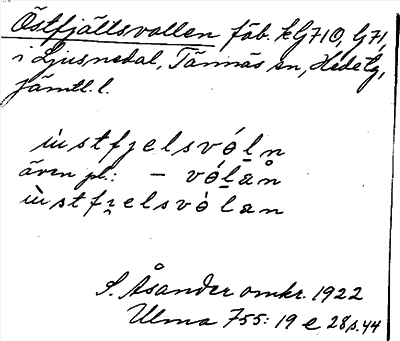 Östfjällsvallen fäb. kG710, G71
i Ljusnedal, Tännäs sn, Hede tg,
Jämtl. l.
ùstfjelsvóḷn̥
även pl.: – vóḷån
ùstfjelsvòlan
S. Åsander omkr. 1922
Ulma 755: 19 e 28 s. 44